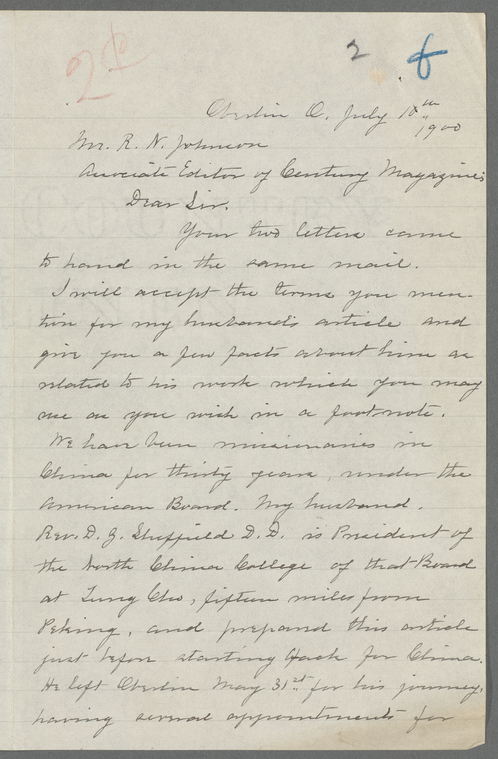 2¢
2 8
Oberlin O. July 10th
1900
Mr. R. N. Johnson
Associate Editor of Century Magazine
Dear Sir.
Your two letters came
to hand in the same mail.
I will accept the terms you men-
tion for my husband's article and
give you a few facts about him as
related to his work which you may
use as you wish in a footnote.
We have been missionaries in
China for thirty years, under the
American Board. My husband,
Rev. D. Z. Sheffield D.D. is President of
the North China College of that Board
at Tung Cho, fifteen miles from
Peking, and prepared this article
just before starting back for China.
He left Oberlin May 31st for his journey,
having several appointments for